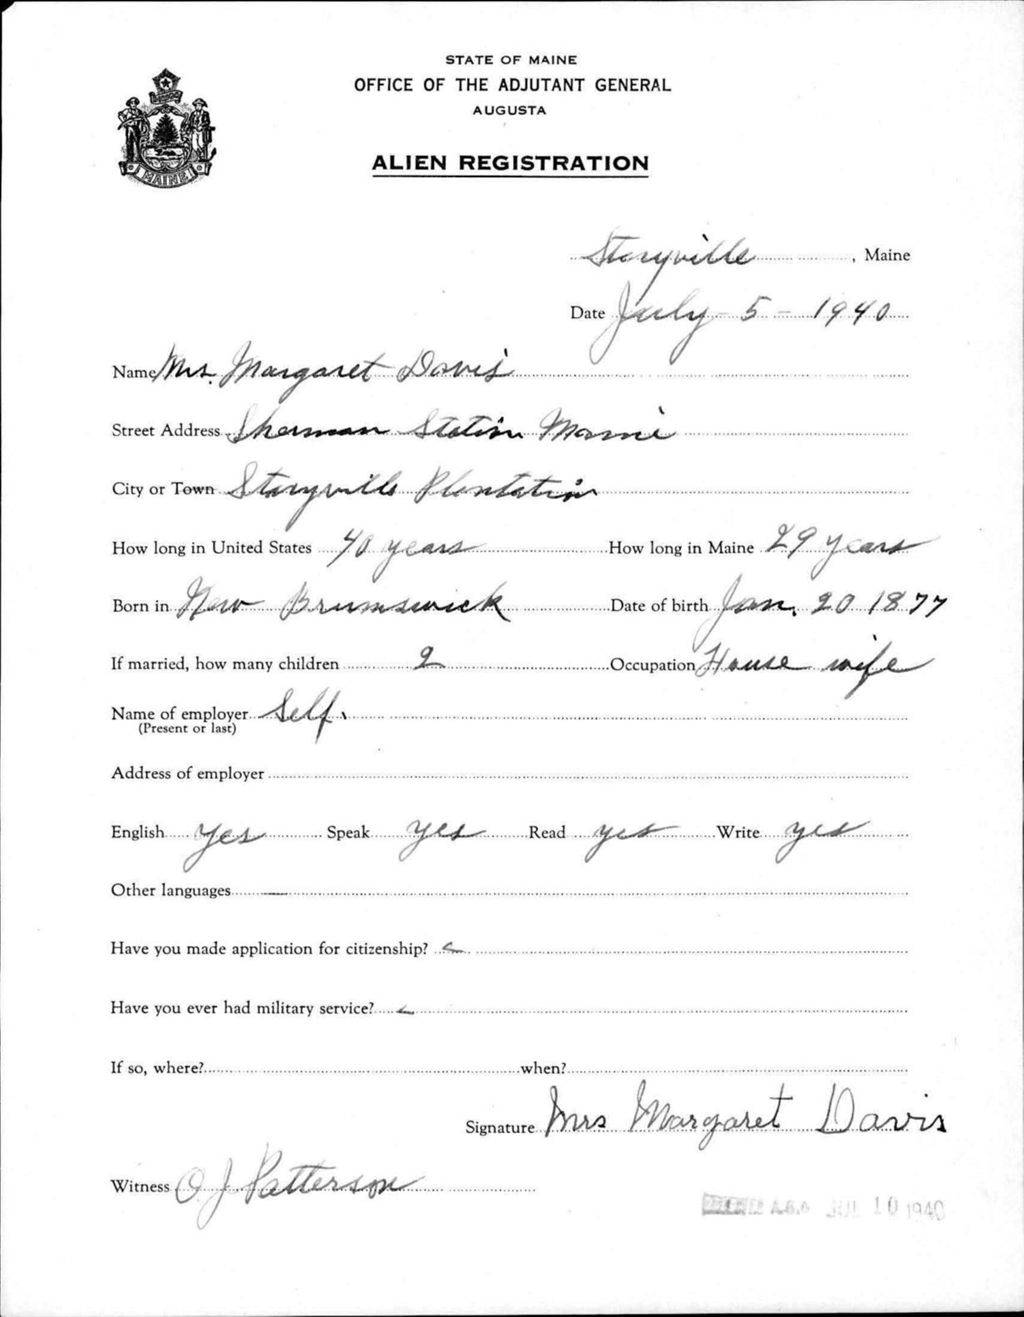 STATE OF MAINE
OFFICE OF THE ADJUTANT GENERAL
AUGUSTA
MAINE
ALIEN REGISTRATION
Storyville, Maine
Date July 5 - 1940
Name Mrs. Margaret Davis
Street Address Sherman Station Maine
City or Town Storyville Plantation
How long in United States 40 years How long in Maine 29 years
Born in New Brunswick Date of birth Jan. 20 1877
If married, how many children 2 Occupation House wife
Name of employer Self.
(Present or last)
Address of employer
English Yes Speak yes Read yes Write yes
Other languages —
Have you made application for citizenship?
Have you ever had military service?
If so, where? when?
Signature Mrs Margaret Davis
Witness O J Patterson
A.G.O. JUL 10 1940